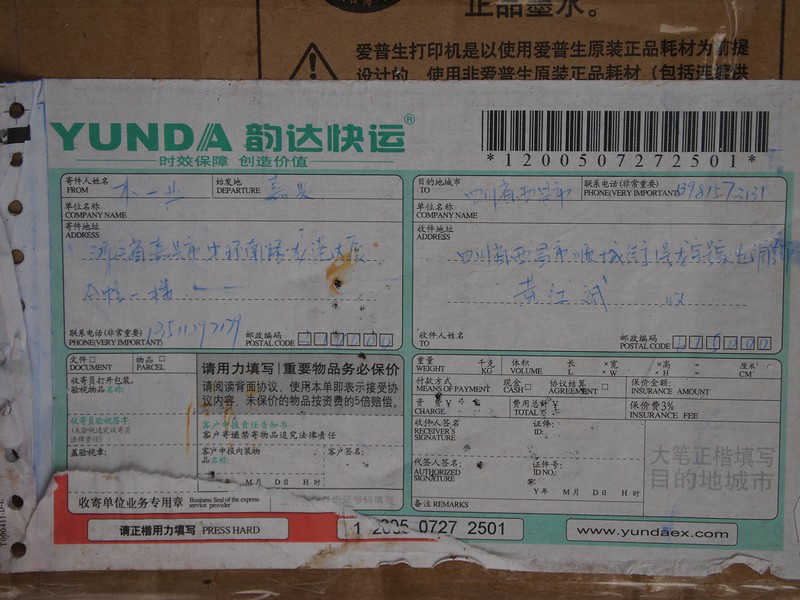 正品墨水。
爱普生打印机是以使用爱普生原装正品耗材为前提
设计的，使用非爱普生原装正品耗材（包括连续供
YUNDA 韵达快运®
时效保障 创造价值
*1200507272501*
寄件人姓名
FROM
始发地
DEPARTURE
嘉兴
单位名称
COMPANY NAME
寄件地址
ADDRESS
浙江省嘉兴市中环南路
联系电话(非常重要)
PHONE(VERY IMPORTANT)
邮政编码
POSTAL CODE
目的地城市
TO
四川省西昌市
联系电话(非常重要)
PHONE(VERY IMPORTANT)
单位名称
COMPANY NAME
收件地址
ADDRESS
四川省西昌市
黄江斌 收
收件人姓名
TO
邮政编码
POSTAL CODE
文件 □
DOCUMENT
物品 □
PARCEL
收寄员打开包装,
验视物品名称:
收寄员验视签字
(未验视追究收寄员
法律责任)
盖验视章:
请用力填写 重要物品务必保价
请阅读背面协议，使用本单即表示接受协
议内容，未保价的物品按资费的5倍赔偿。
客户申报责任告知书
客户寄递禁寄物品追究法律责任
客户申报内装物
品名称:
客户签名:
年 M月 D日 H时
收寄单位业务专用章
Business Seal of the express
service provider
重量
WEIGHT
千克
KG
体积
VOLUME
长
L
×宽
×W
×高
×H
=
厘米³
CM³
付款方式
MEANS OF PAYMENT
现金 □
CASH
协议结算 □
AGREEMENT
保价金额:
INSURANCE AMOUNT
资 费 ¥
CHARGE
费用总计 ¥
TOTAL
保价费3%
INSURANCE FEE
收件人签名
RECEIVER'S
SIGNATURE
证件:
ID:
代签人签名:
AUTHORIZED
SIGNATURE
证件号:
ID NO.:
Y年 M月 D日 H时
备注 REMARKS
大笔正楷填写
目的地城市
请正楷用力填写 PRESS HARD
1 2005 0727 2501
www.yundaex.com